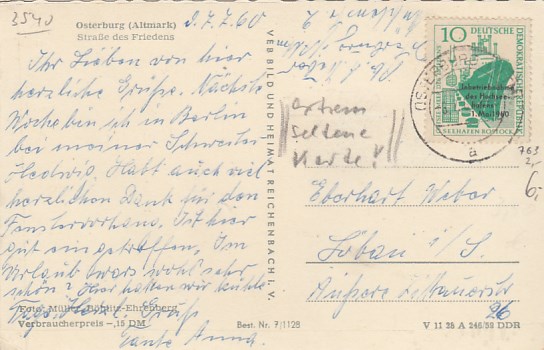 3540
Osterburg (Altmark)
Straße des Friedens
d. 7. 7. 60
Ihr Lieben von hier
herzliche Grüße. Nächste
Woche bin ich in Berlin
bei meiner Schwester
Hedwig. Habt auch viel
herzlichen Dank für den
Fenstervorhang. Ist hier
gut ein getroffen. Im
Urlaub wars wohl sehr
schön? Hier hatten wir kühle
Tage. Grüße
Tante Anna.
Foto: Müller, Döbitz-Ehrenberg
Verbraucherpreis -,15 DM
Best. Nr. 7/1128
VEB BILD UND HEIMAT REICHENBACH I. V.
extrem
seltene
Karte!
10 DEUTSCHE
DEMOKRATISCHE REPUBLIK
Inbetriebnahme
des Hochsee-
hafens
1. Mai 1960
SEEHAFEN ROSTOCK
a
763
2,-
6,-
Eberhart Weber
Löbau i/S.
Äußere Zittauerstr
26
V 11 28 A 246/59 DDR